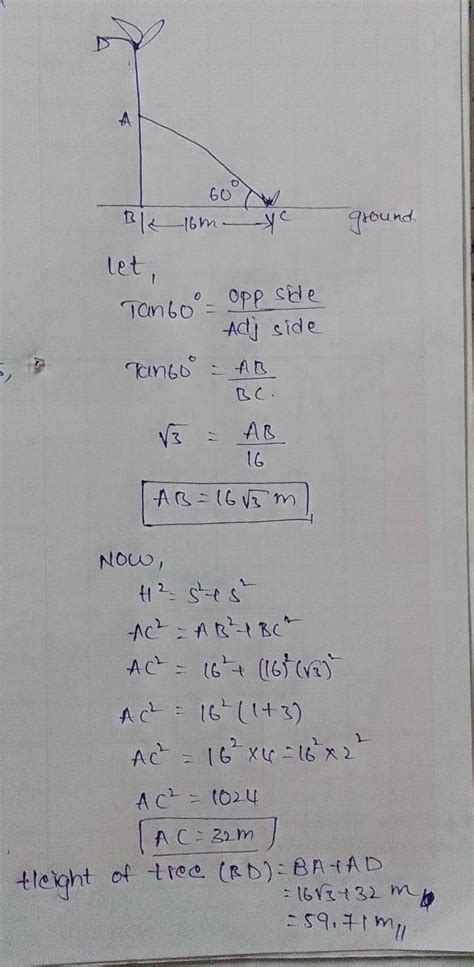 D
A
60°
B
16m
C
ground.
Let,
Tan60° = opp side / Adj side
Tan60° = AB / BC.
√3 = AB / 16
AB = 16√3 m
NOW,
H² = S² + S²
AC² = AB² + BC²
AC² = 16² + (16)² (√3)²
AC² = 16² (1+3)
AC² = 16² × 4 = 16² × 2²
AC² = 1024
AC = 32m
Height of tree (BD) = BA + AD
= 16√3 + 32 m
= 59.71 m